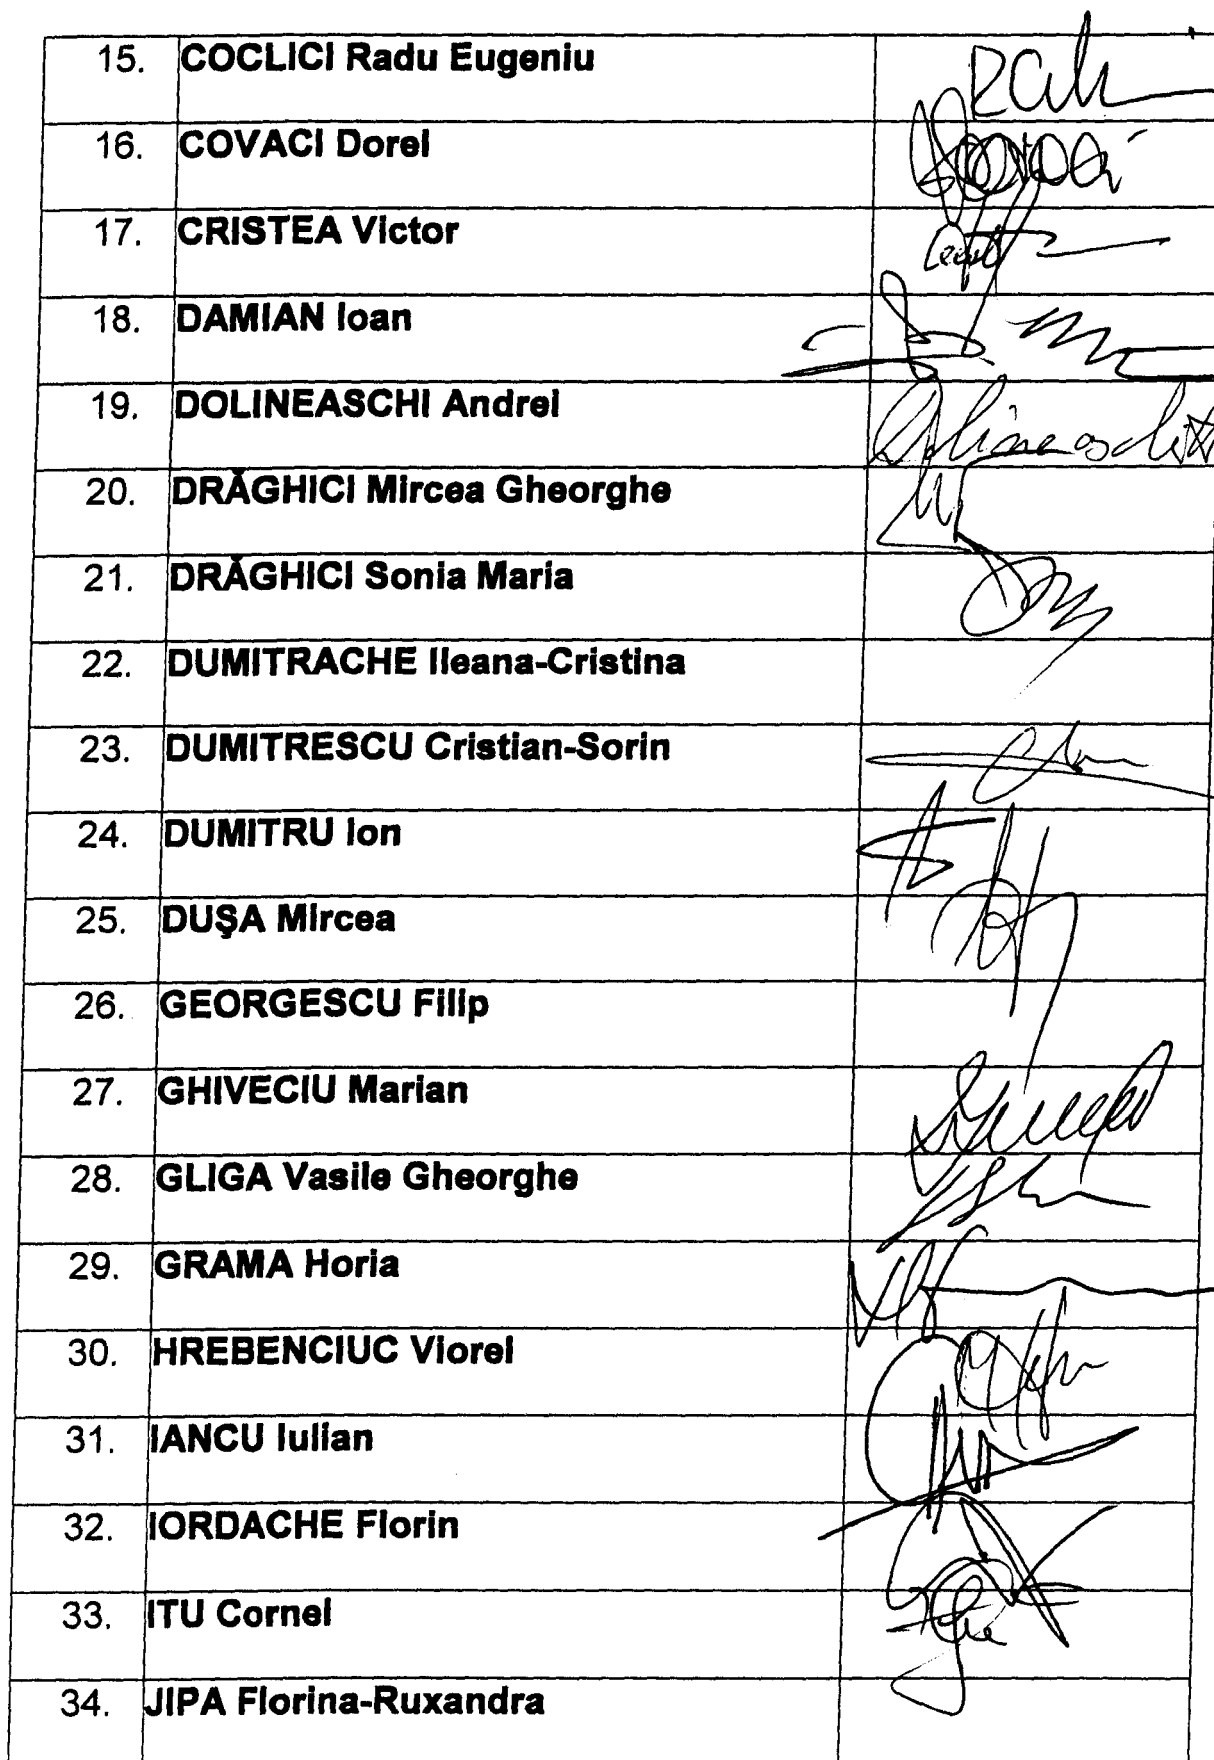 15. COCLICI Radu Eugeniu
16. COVACI Dorel
17. CRISTEA Victor
18. DAMIAN Ioan
19. DOLINEASCHI Andrei Dolineaschi
20. DRĂGHICI Mircea Gheorghe
21. DRĂGHICI Sonia Maria
22. DUMITRACHE Ileana-Cristina
23. DUMITRESCU Cristian-Sorin
24. DUMITRU Ion
25. DUŞA Mircea
26. GEORGESCU Filip
27. GHIVECIU Marian
28. GLIGA Vasile Gheorghe
29. GRAMA Horia
30. HREBENCIUC Viorel
31. IANCU Iulian
32. IORDACHE Florin
33. ITU Cornel
34. JIPA Florina-Ruxandra